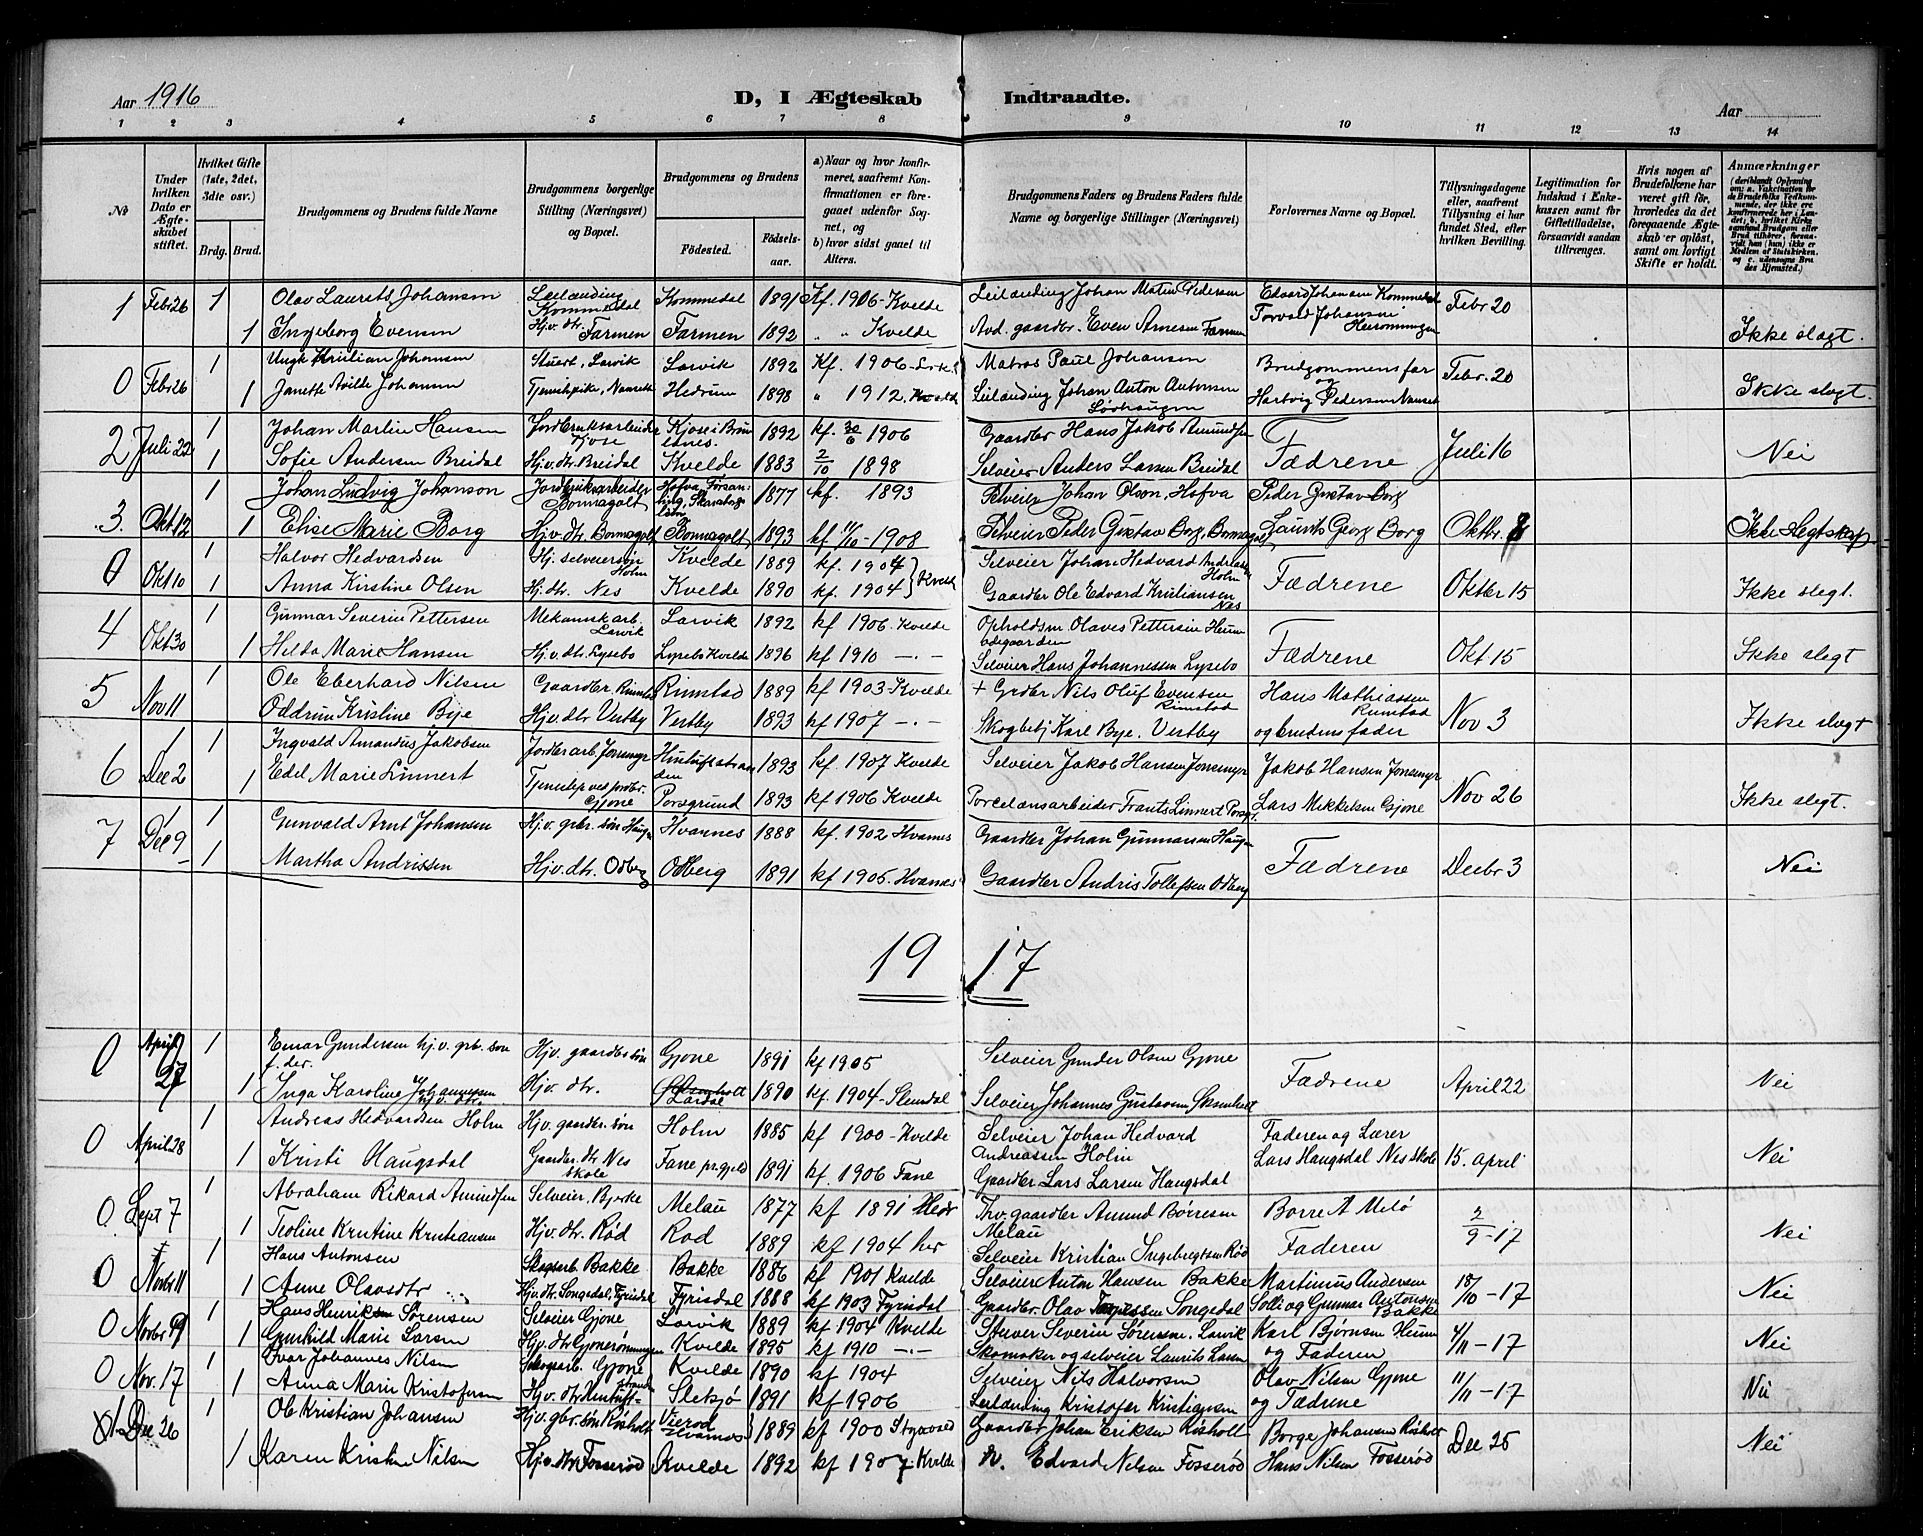 Aar 1916
D, I Ægteskab Indtraadte.
Aar
1 2 3 4 5 6 7 8 9 10 11 12 13 14
No
Under hvilken Dato er Ægteskabet stiftet.
Hvilket Gifte (1ste, 2det, 3die osv.)
Brdg. Brud.
Brudgommens og Brudens fulde Navne
Brudgommens borgerlige Stilling (Næringsvei) og Bopæl.
Brudgommens og Brudens
Fødested. Fødselsaar.
a) Naar og hvor konfirmeret, saafremt Konfirmationen er foregaaet udenfor Sognet, og
b) hvor sidst gaaet til Alters.
Brudgommens Faders og Brudens Faders fulde Navne og borgerlige Stillinger (Næringsvei)
Forlovernes Navne og Bopæl.
Tillysningsdagene eller, saafremt Tillysning ei har fundet Sted, efter hvilken Bevilling.
Legitimation for Indskud i Enkekassen samt for Giftetilladelse, forsaavidt saadan tiltrænges.
Hvis nogen af Brudefolkene har været gift før, hvorledes da det foregaaende Ægteskab er opløst, samt om lovligt Skifte er holdt.
Anmærkninger
(deriblandt Oplysning om: a. Vakcination for de Brudefolks Vedkommende, der ikke ere konfirmerede her i Landet; b. hvilket Kirkesamfund Brudgom eller Brud tilhører, forsaavidt han (hun) ikke er Medlem af Statskirken, og c. udensogns Brudes Hjemsted.)
1 Febr 26 1 Olav Laurits Johansen Leilænding Kommedal Kommedal 1891 Kf. 1906 - Kvelde Leilænding Johan Martin Pedersen Edvard Johansen Kommedal Febr 20
1 Ingeborg Evensen Hjv. dtr. Farmen Farmen 1892 " " Kvelde Avd. gaardbr. Even Arnesen Farmen Torvald Johansen Ikke slegt.
0 Febr 26 1 Ungk Kristian Johansen Stuert, Larvik Larvik 1892 Kf. 1906 Matros Paul Johansen Brudgommens far og Febr. 20
1 Janette Avilde Johansen Tjenestepike, Nanset Hedrum 1898 " 1912. Kvelde Leilænding Johan Anton Antonsen Løvhaugen Hartvig Pedersen Nanset Ikke slegt.
2 Juli 22 1 Johan Martin Hansen Jordbruksarbeider Kjose Kjose i Brunlanes. 1892 kf. 30/6 1906 Gaardbr Hans Jakob Amundsen Fædrene Juli 16
1 Sofie Andersen Breidal Hjv. dtr. Breidal Kvelde 1883 2/10 1898 Selveier Anders Larsen Breidal Nei
3. Okt 12 1 Johan Ludvig Johanson Jordbruksarbeider Bonnagolt Hofva, 1877 kf. 1893 Selveier Johan Olson, Hofva Peder Gustav Borg
1 Elise Marie Borg Hjv. dtr. Bonnagolt Bonnagolt 1893 kf 11/10 - 1908 Selveier Peder Gustav Borg, Bonnagolt Laurits Georg Borg Oktbr. 8 Ikke slegtskap
0 Okt 10 1 Halvor Hedvardsen Hj. selveiersøn Holm Kvelde 1889 kf. 1904 Selveier Johan Hedvard Andreassen Holm Fædrene Oktbr 15
1 Anna Kirstine Olsen Hj. dtr. Nes Kvelde 1890 kf. 1904 } Kvelde Gaardbr Ole Edvard Kristiansen Nes Ikke slegt.
4 Okt 30 1 Gunnar Severin Pettersen Mekanikarb. Larvik Larvik 1892 kf 1906. Kvelde Opholdsm Olaves Pettersen Fædrene Okt 15
1 Helda Marie Hansen Hj. v. dtr. Lysebo Lysebo Kvelde 1896 kf 1910 - " - Selveier Hans Johannessen Lysebo Ikke slegt
5 Nov 11 1 Ole Eberhard Nilsen Gaardbr. Rimstad Rimstad 1889 kf 1903 - Kvelde + Grdbr Nils Oluf Evensen Rimstad Hans Mathiassen Rimstad Nov 3
Oddrun Kristine Bye Hjv. dtr Vestby Vestby 1893 kf 1907 - " - Skogbetj Karl Bye. Vestby og brudens fader Ikke slegt
6 Dec 2 1 Ingvald Amandus Jakobsen Jordbr arb. Jonsmyr 1893 kf. 1907 Kvelde Selveier Jakob Hansen Jonsmyr Jakob Hansen Jonsmyr Nov 26
1 Edel Marie Linnert Tjenestep ves prdbr. Gjone Porsgrund 1893 kf 1906 Kvelde Porcelansarbeider Frants Linnert Porsgr. Lars Mikkelsen Gjone Ikke slegt.
7 Dec 9 1 Gunvald Arnt Johansen Hj. v. gbr. søn Haugen Hvarnes 1888 kf. 1902 Hvarnes Gaardbr Johan Gunnarsen Haugen Fædrene Decbr 3
1 Martha Andrissen Hj. v. dtr. Odberg Odberg 1891 kf 1905. Hvarnes Gaardbr Andris Tollefsen Odberg Nei
19 17
0 April 27 1 Einar Gundersen hj. v. grb. søn f. der. Hjv. gaardbr søn Gjone 1891 kf 1905 Selveier Gunder Olsen Gjone Fædrene April 22
1 Inga Karoline Johannessen hj.v. dtr. Hjv. dtr. Lardal 1890 kf. 1904 - Slemdal Selveier Johannes Gustavsen Nei
0 April 28 1 Andreas Hedvardsen Holm Hjv. gaardbr. søn Holm 1885 kf 1900 - Kvelde Selveier Johan Hedvard Andreassen Holm Faderen og Lærer
1 Kristi Haugsdal Gaardbr. dtr Nes skole Fane pr.gjeld 1891 kf. 1906 Fane Gaardbr Lars Larsen Haugsdal Lars Haugsdal Nes skole 15. april Nei
0. Sept 7 1 Abraham Rikard Amundsen Selveier, Bjerke Melau 1877 kf 1891 Hedr Fhv. gaardbr Amund Børresen Melau Borre A Melø 2/9 - 17
1 Teoline Kristine Kristiansen Hjv. dtr. Rød Rød 1889 kf 1904 her Selveier Kristian Ingebregtsen Rød Faderen Nei
0 Novbr 11 1 Hans Antonsen Skogsarb. Bakke Bakke 1886 kf 1901 Kvelde Selveier Anton Hansen Bakke Martinus Andersen 18/10 - 17
1 Anne Olavsdtr Hjv. dtr. Songedal, Fyrisdal Fyrisdal 1888 kf 1903 Fyrisdal Gaardbr. Olav Songsdal Solli og Gunnar Antonsen Bakke Nei
0 Novbr 19 1 Hans Henriksen Sørensen Selveier Gjone Larvik 1889 kf 1904 Kvelde Stuver Severin Sørensen. Larvik Karl Bjørnsen 4/11 - 17
1 Gunhild Marie Larsen Hjv. dtr Gjonerønningen Kvelde 1895 kf 1910 - " - Skomaker og selveier Laurits Larsen og Faderen Nei
0 Nov. 17 1 Ivar Johannes Nilsen Skogsarb. Gjone Kvelde 1890 kf 1904 Selveier Nils Halvorsen Olav Nilsen Gjone 11/11 - 17
1 Anna Marie Kristofersen Hjv. dtr 1891 kf 1906 Leilænding Kristofer Kristiansen og Fædrene Nei
1 Dec 26 1 Ole Kristian Johansen Hjv. gbr. søn Risholt Vierød Hvarnes 1889 kf 1900 Styrvold Gaardbr Johan Eriksen Risholt Borge Johansen Risholt Dec 25
1 Karen Kristine Nilsen Hjv. dtr Fosserød Kvelde 1892 kf 1907. Kvelde Edvard Nilsen Fosserød Hans Nilsen Fosserød Nei